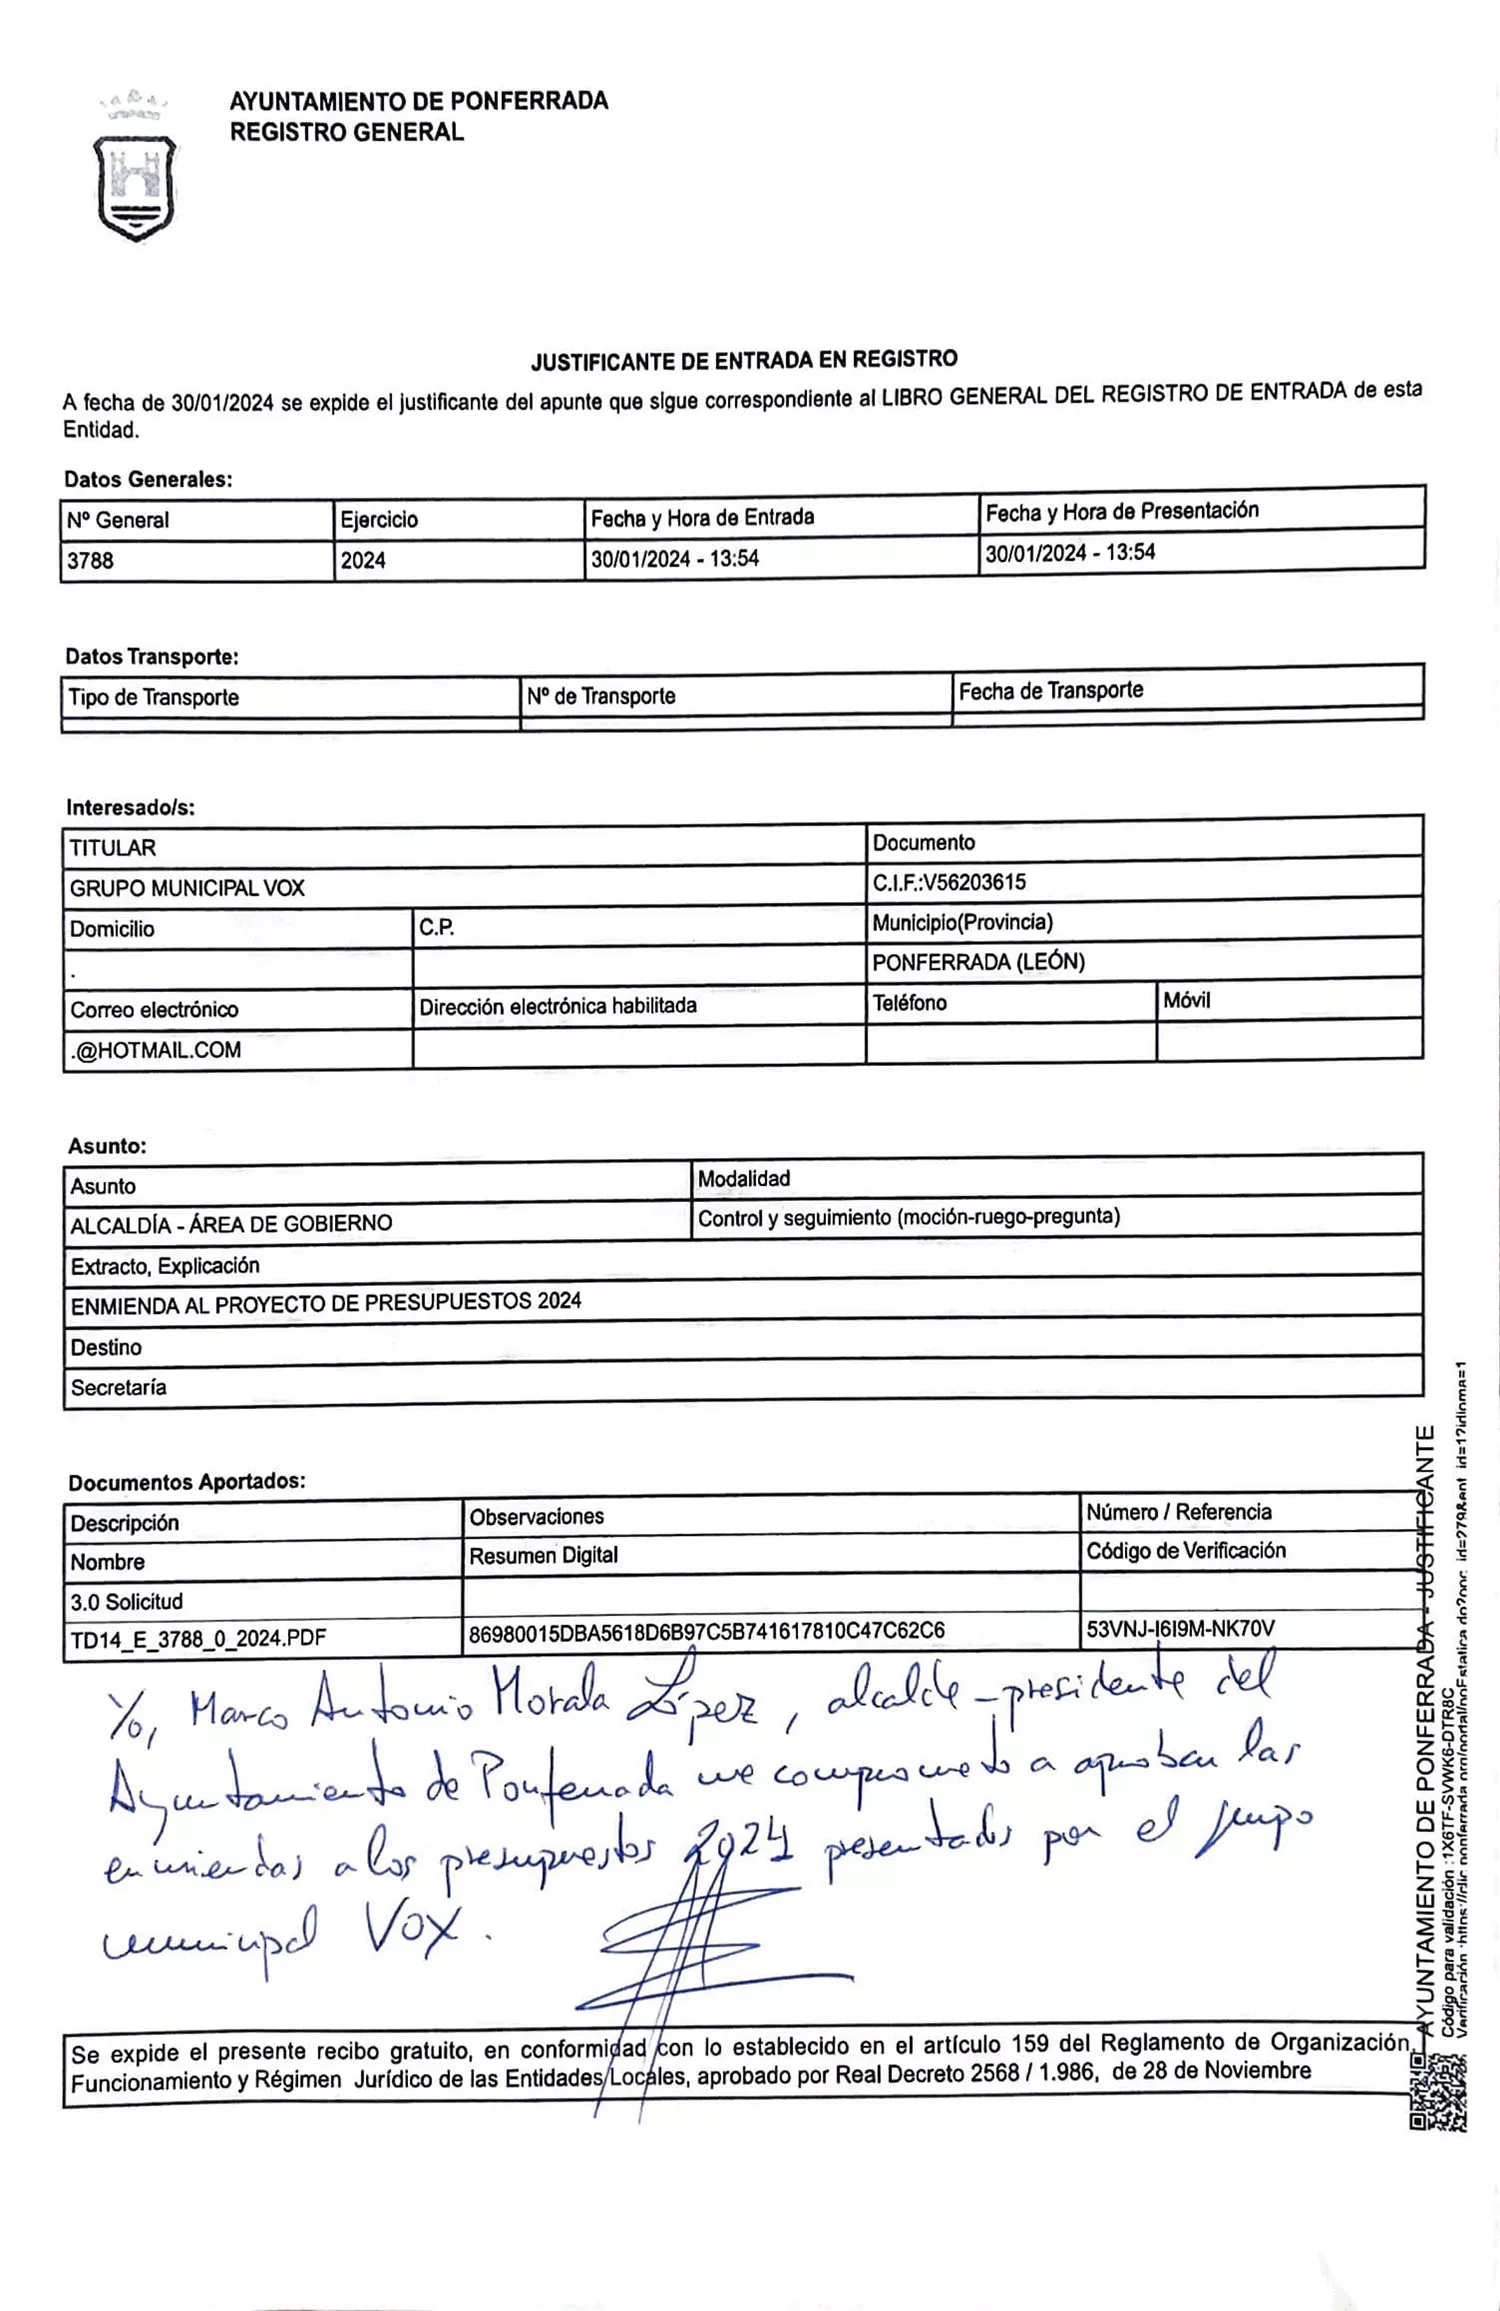 AYUNTAMIENTO DE PONFERRADA
REGISTRO GENERAL
JUSTIFICANTE DE ENTRADA EN REGISTRO
A fecha de 30/01/2024 se expide el justificante del apunte que sigue correspondiente al LIBRO GENERAL DEL REGISTRO DE ENTRADA de esta
Entidad.
Datos Generales:
Nº General Ejercicio Fecha y Hora de Entrada Fecha y Hora de Presentación
3788 2024 30/01/2024 - 13:54 30/01/2024 - 13:54
Datos Transporte:
Tipo de Transporte Nº de Transporte Fecha de Transporte
Interesado/s:
TITULAR Documento
GRUPO MUNICIPAL VOX C.I.F.:V56203615
Domicilio C.P. Municipio(Provincia)
. PONFERRADA (LEÓN)
Correo electrónico Dirección electrónica habilitada Teléfono Móvil
.@HOTMAIL.COM
Asunto:
Asunto Modalidad
ALCALDÍA - ÁREA DE GOBIERNO Control y seguimiento (moción-ruego-pregunta)
Extracto, Explicación
ENMIENDA AL PROYECTO DE PRESUPUESTOS 2024
Destino
Secretaría
Documentos Aportados:
Descripción Observaciones Número / Referencia
Nombre Resumen Digital Código de Verificación
3.0 Solicitud
TD14_E_3788_0_2024.PDF 86980015DBA5618D6B97C5B741617810C47C62C6 53VNJ-I6I9M-NK70V
Yo, Marco Antonio Morala López, alcalde-presidente del
Ayuntamiento de Ponferrada me comprometo a aprobar las
enmiendas a los presupuestos 2024 presentados por el grupo
municipal VOX.
Se expide el presente recibo gratuito, en conformidad con lo establecido en el artículo 159 del Reglamento de Organización,
Funcionamiento y Régimen Jurídico de las Entidades Locales, aprobado por Real Decreto 2568 / 1.986, de 28 de Noviembre
AYUNTAMIENTO DE PONFERRADA - JUSTIFICANTE
Código para validación :1X6TF-SVWK6-DTR8C